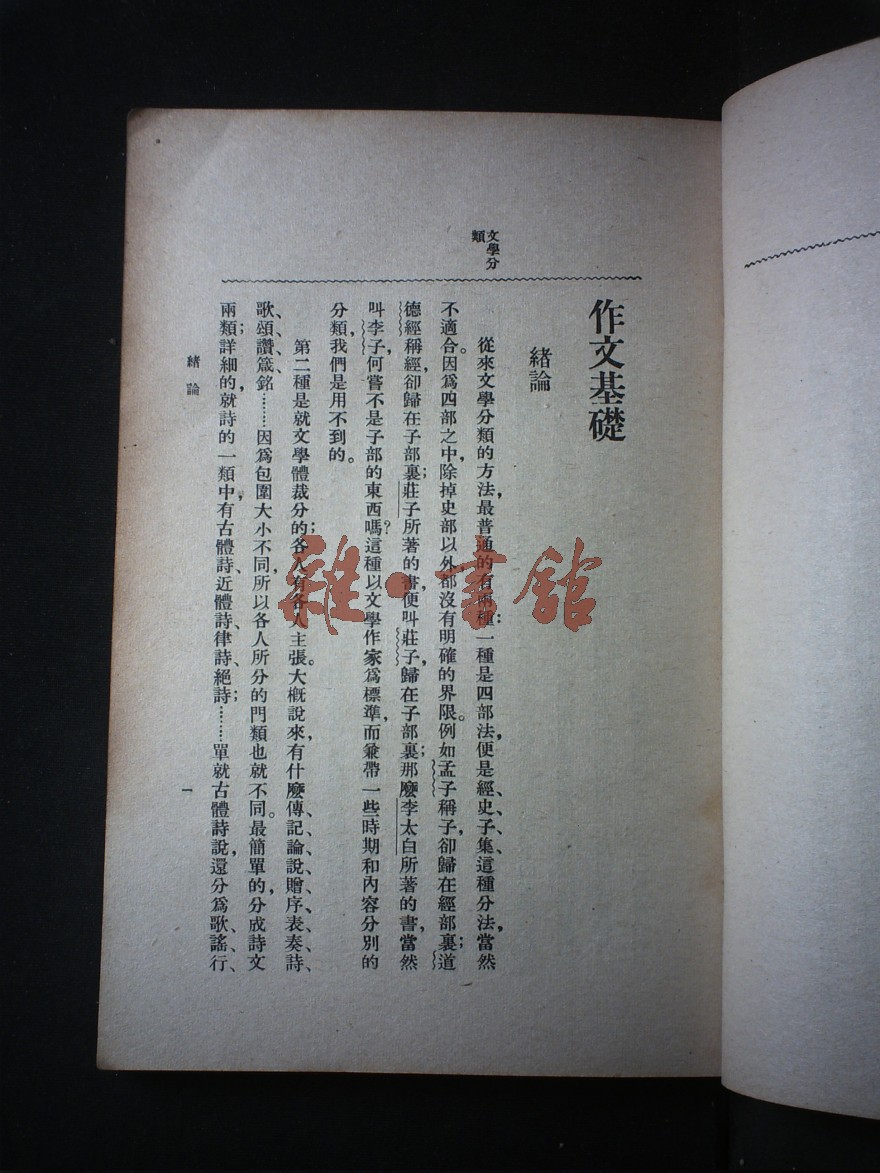 文學分
類
作文基礎
緒論
從來文學分類的方法,最普通的有兩種:一種是四部法,便是經、史、子、集、這種分法,當然
不適合。因爲四部之中,除掉史部以外都沒有明確的界限。例如孟子稱子,卻歸在經部裏;道
德經稱經,卻歸在子部裏;莊子所著的書,便叫莊子,歸在子部裏;那麽李太白所著的書,當然
叫李子,何嘗不是子部的東西嗎?這種以文學作家爲標準,而兼帶一些時期和內容分別的
分類,我們是用不到的。
第二種是就文學體裁分的;各人有各人主張。大概說來,有什麽傳、記、論、說、贈序、表、奏、詩、
歌、頌、讚、箴、銘……因爲包圍大小不同,所以各人所分的門類也就不同。最簡單的,分成詩文
兩類;詳細的,就詩的一類中,有古體詩、近體詩、律詩、絕詩;……單就古體詩說,還分爲歌、謠、行、
緒論
一
雜·書館